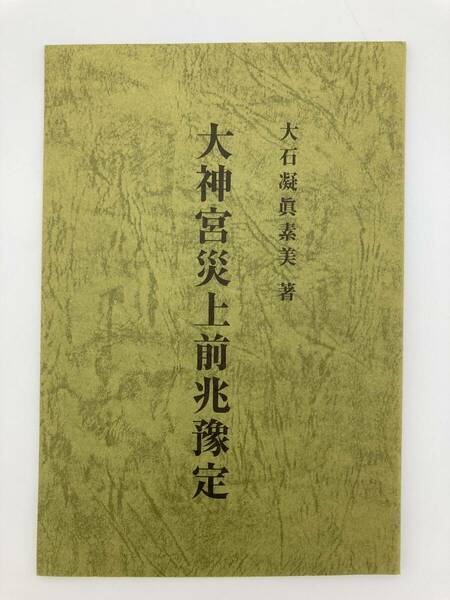 大石凝眞素美 著
大神宮災上前兆豫定